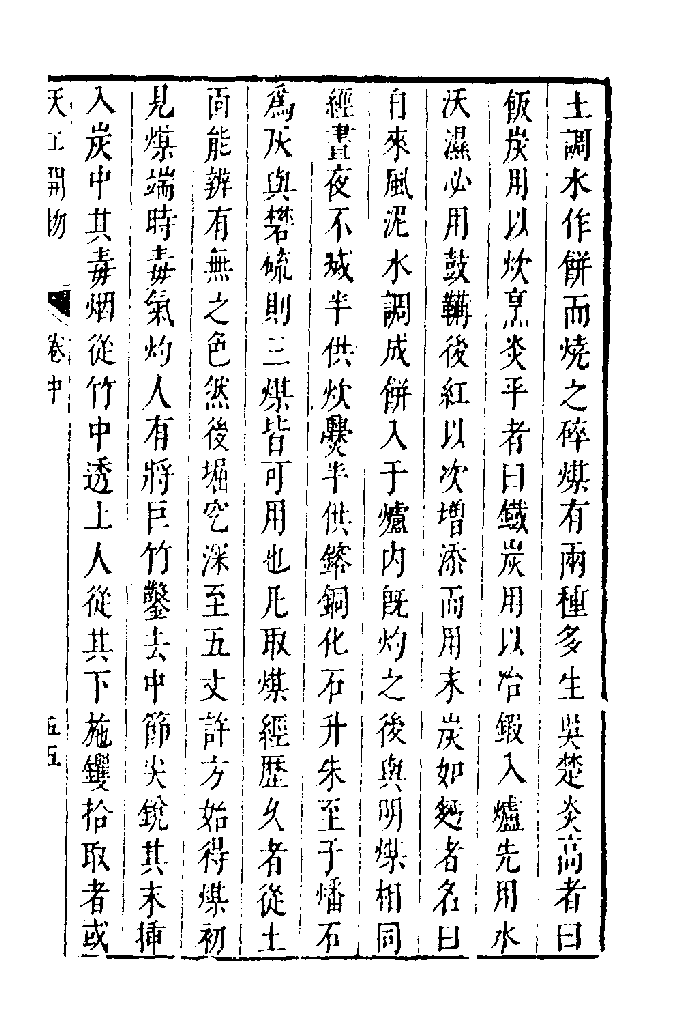 土調水作餅而燒之碎煤有兩種多生吳楚炎高者曰
飯炭用以炊烹炎平者曰鐵炭用以冶鍛入爐先用水
沃濕必用鼓鞴後紅以次增添而用末炭如麪者名曰
自來風泥水調成餅入于爐內既灼之後與明煤相同
經晝夜不滅半供炊爨半供鎔銅化石升朱至于燔石
爲灰與礬硫則三煤皆可用也凡取煤經歷久者從土
面能辨有無之色然後堀空深至五丈許方始得煤初
見煤端時毒氣灼人有將巨竹鑿去中節尖銳其末揷
入炭中其毒烟從竹中透上人從其下施钁拾取者或
天工開物 卷中 五五